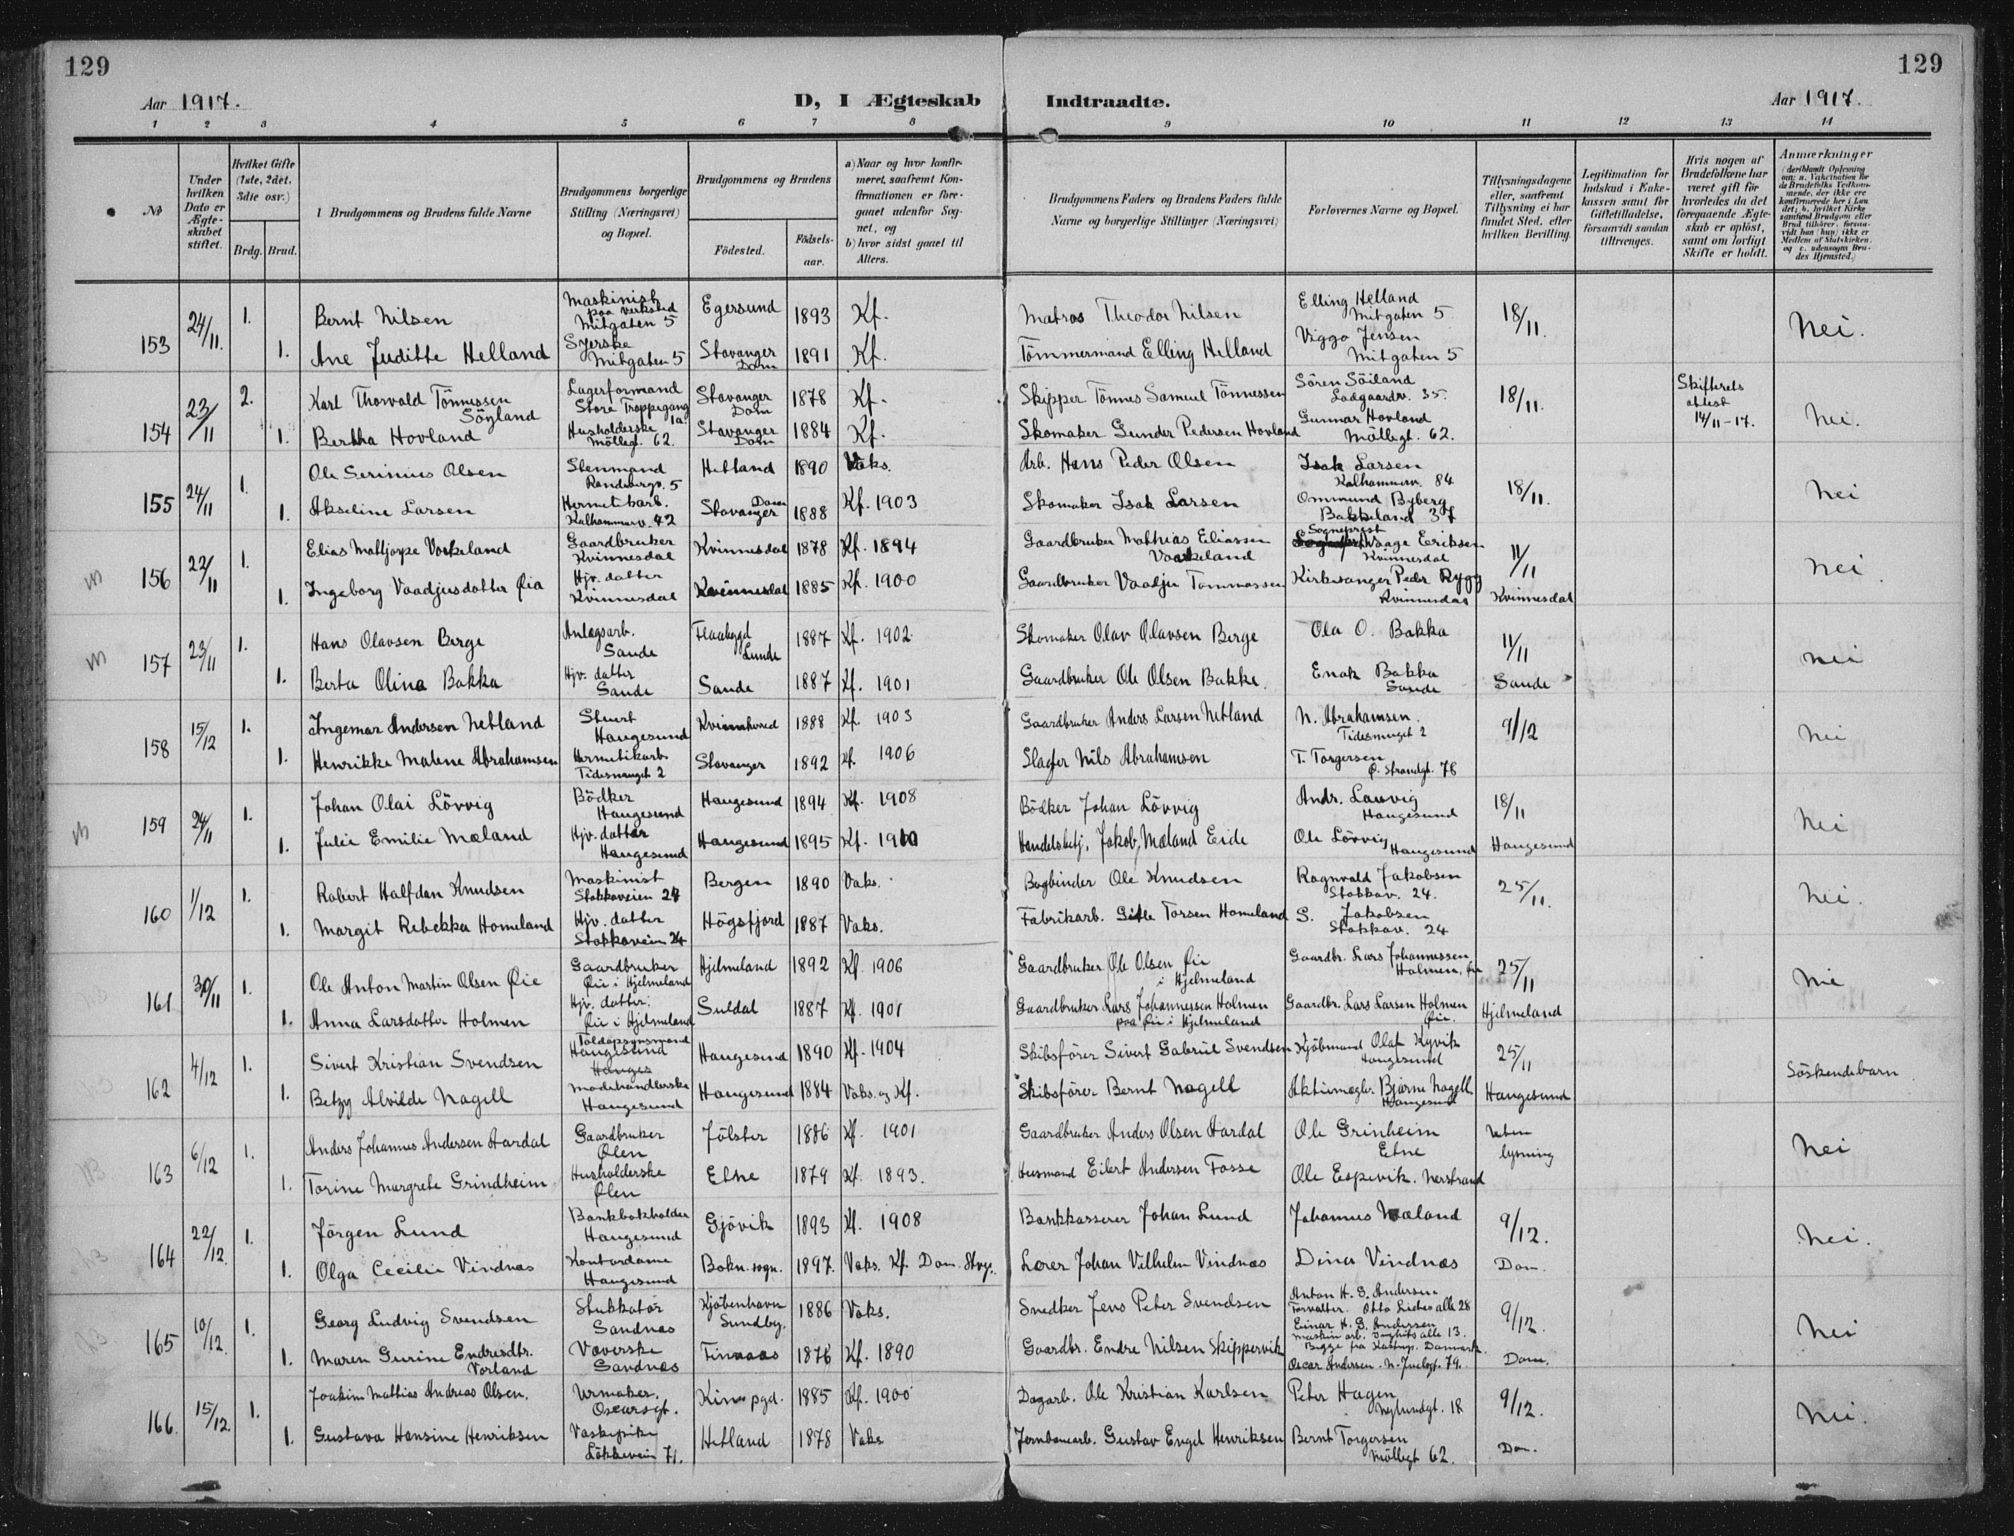 129
129
Aar 1917.
D, I Ægteskab Indtraadte.
Aar 1917.
1 2 3 4 5 6 7 8 9 10 11 12 13 14
No
Under hvilken Dato er Ægteskabet stiftet.
Hvilket Gifte (1ste, 2det, 3die osv.)
Brdg. Brud.
Brudgommens og Brudens fulde Navne
Brudgommens borgerlige Stilling (Næringsvei) og Bopæl.
Brudgommens og Brudens
Födested.
Födselsaar.
a) Naar og hvor konfirmeret, saafremt Konfirmationen er foregaaet udenfor Sognet, og
b) hvor sidst gaaet til Alters.
Brudgommens Faders og Brudens Faders fulde Navne og borgerlige Stillinger (Næringsvei)
Forlovernes Navne og Bopæl.
Tillysningsdagene eller, saafremt Tillysning ei har fundet Sted, efter hvilken Bevilling.
Legitimation for Indskud i Enkekassen samt for Giftetilladelse, forsaavidt saadan tiltrænges.
Hvis nogen af Brudefolkene har været gift før hvorledes da det foregaaende Ægteskab er oplöst, samt om lovligt Skifte er holdt.
Anmærkninger
153 24/11. 1. Bernt Nilsen Maskinist paa verksted Mitgaten 5 Egersund 1893 Kf. Matros Theodor Nilsen Elling Helland Mitgaten 5 18/11. Nei.
1. Ane Juditte Helland Syerske Mitgaten 5 Stavanger Dom 1891 Kf. Tömmermand Elling Helland Viggo Jensen Mitgaten 5
154 23/11 2. Karl Thorvald Tönnessen Söyland Lagerformand Store Trappegang 1a. Stavanger Dom 1878 Kf. Skipper Tönnes Samuel Tönnessen Sören Söiland Ladgaardv. 35. 18/11. Skifterets attest 14/11-17. Nei.
1. Bertha Hovland Husholderske Möllegt. 62. Stavanger Dom 1884 Kf. Skomaker Gunder Pedersen Hovland Gunnar Hovland Möllegt. 62.
155 24/11 1. Ole Serinius Olsen Stenmand Randabergv. 5 Hetland 1890 Vaks. Arb. Hans Peder Olsen Isak Larsen Kalhammerv. 84 18/11. Nei
1. Akseline Larsen Hermet. barb. Kalhammerv. 42 Stavanger Dom 1888 Kf. 1903 Skomaker Isak Larsen Ommund Byberg Bakkeland 37
156 22/11 1. Elias Mattjorpe Voikeland Gaardbruker Kvinnesdal Kvinnesdal 1878 Kf. 1894 Gaardbruker Mathias Eliassen Vaakeland Sogneprest Vaage Eeriksen Kvinnesdal 11/11 Nei.
1. Ingeborg Vaadjusdotter Øia Hjv. datter Kvinnesdal Kvinnesdal 1885 Kf. 1900 Gaardbruker Vaadju Tommassen Kirkesanger Peder Rygg Kvinnesdal Kvinnesdal
157 23/11 1. Hans Olavsen Berge Anlegsarb. Sande Flaabygd Lunde 1887 Kf. 1902 Skomaker Olav Olavsen Berge Ola O. Bakka 11/11 Nei
1. Berta Olina Bakka Hjv. datter Sande Sande 1887 Kf. 1901 Gaardbruker Ole Olsen Bakke. Enok Bakka Sande Sande
158 15/12 1. Ingemar Andersen Netland Stuert Haugesund Kvinnhered 1888 Kf. 1903 Gaardbruker Anders Larsen Netland N. Abrahamsen. Tidesmuget 2 9/12 Nei
1. Henrikke Malene Abrahamsen Hermetikarb. Tidesmuget 2 Stavanger 1892 Kf. 1906 Slagter Nils Abrahamsen T. Torgersen Ø. Strandgt. 78
159 24/11 1. Johan Olai Lövvig Bödker Haugesund Haugesund 1894 Kf. 1908 Bödker Johan Lövvig Andr. Lauvig Haugesund 18/11 Nei
1. Julie Emilie Mæland Hjv. datter Haugesund Haugesund 1895 Kf. 1910 Handelsbetj. Jakob Mæland Eide Ole Lövvig Haugesund Haugesund
160 1/12 1. Robert Halfdan Knudsen Maskinist Stokkaveien 24 Bergen 1890 Vaks. Bogbinder Ole Knudsen Ragnvald Jakobsen Stokkav. 24. 25/11. Nei.
1. Margit Rebekka Homeland Hjv. datter Stokkaveien 24 Högsfjord 1887 Vaks. Fabrikarb. Gitle Torsen Homeland S. Jakobsen Stokkav. 24
161 30/11 1. Ole Anton Martin Olsen Øie Gaardbruker Øie i Hjelmeland Hjelmeland 1892 Kf. 1906 Gaardbruker Ole Olsen Øie i Hjelmeland Gaardbr. Lars Johannessen Holmen, Øie 25/11 Nei
1. Anna Larsdatter Holmen Hjv. datter. Øie i Hjelmeland Suldal 1887 Kf. 1901 Gaardbruker Lars Johannessen Holmen paa Øie i Hjelmeland Gaardbr. Lars Larsen Holmen Øie. Hjelmeland
162 4/12 1. Sivert Kristian Svendsen Toldopsynsmand Haugesund Haugesund 1890 Kf. 1904 Skibsförer Sivert Gabriel Svendsen Kjöbmand Olaf Kyvik Haugesund 25/11 Söskendebarn
1. Betzy Alvilde Nagell Modehandlerske Haugesund Haugesund 1884 Vaks. og Kf. Skibsförer Bernt Nagell Aktiemegler Bjarne Nagell Haugesund Haugesund
163 6/12 1. Anders Johannes Andersen Aardal Gaardbruker Ølen Jölster 1886 Kf. 1901 Gaardbruker Anders Olsen Aardal Ole Grinheim Etne Uten lysning Nei
1. Torine Margrete Grindheim Husholderske Ølen Etne 1879 Kf. 1893. Husmand Eilert Andersen Fosse Ole Espevik. Nerstrand
164 22/12. 1. Jörgen Lund Bankbokholder Haugesund Gjövik 1893 Kf. 1908 Bankkasserer Johan Lund Johannes Mæland 9/12. Nei.
1. Olga Cecilie Vindnæs Kontordame Haugesund Bokn. sogn. 1897. Vaks. Kf. Dom. Stvgr. Lærer Johan Vilhelm Vindnæs Dina Vindnæs Dom.
165 10/12. 1. Georg Ludvig Svendsen Stukkatör Sandnæs Kjöbenhavn Sundby. 1886 Vaks. Snedker Jens Peter Svendsen Anton H. S. Andersen Forvalter. Otto Liebes alle 28 Einar H. S. Andersen Maskin arb. alle 13. Begge fra Kastrup. Danmark. 9/12. Nei
1. Maren Gurine Endresdtr. Vorland Væverske Sandnæs Finnaas 1876 Kf. 1890 Gaardbr. Endre Nilsen Skippervik Oscar Andersen. N. Juelsgt. 79. Dom.
166. 15/12. 1. Joakim Mathias Andreas Olsen. Urmaker. Oscarsgt. Kinn pgd. 1885 Kf. 1900 Dagarb. Ole Kristian Karlsen Peter Hagen Nylundgt. 18 9/12. Nei.
1. Gustava Hansine Henriksen Vaskepike Lökkeveien 71. Hetland 1878 Vaks Jernbanearb. Gustav Engel Henriksen Bernt Torgersen Möllegt 62. Dom.